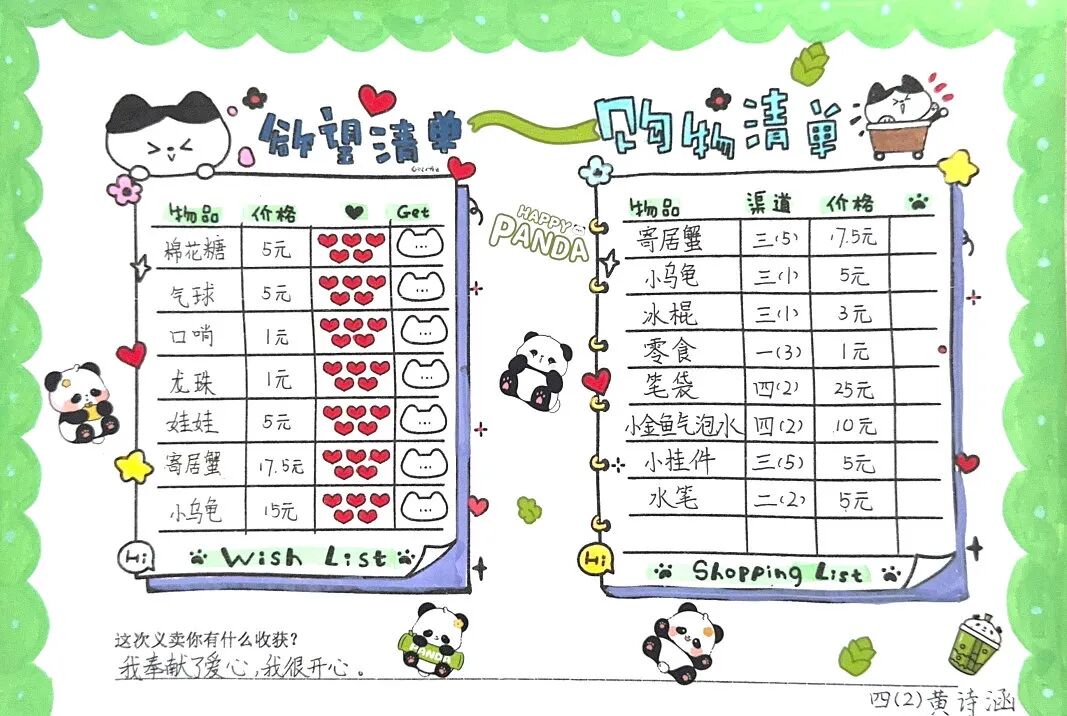 欲望清单
购物清单
物品 价格 Get
棉花糖 5元
气球 5元
口哨 1元
龙珠 1元
娃娃 5元
寄居蟹 17.5元
小乌龟 15元
Hi Wish List
HAPPY
PANDA
物品 渠道 价格
寄居蟹 三(5) 17.5元
小乌龟 三(1) 5元
冰棍 三(1) 3元
零食 一(3) 1元
笔袋 四(2) 25元
小金鱼气泡水 四(2) 10元
小挂件 三(5) 5元
水笔 二(2) 5元
Hi Shopping List
PANDA
这次义卖你有什么收获?
我奉献了爱心,我很开心。
四(2)黄诗涵